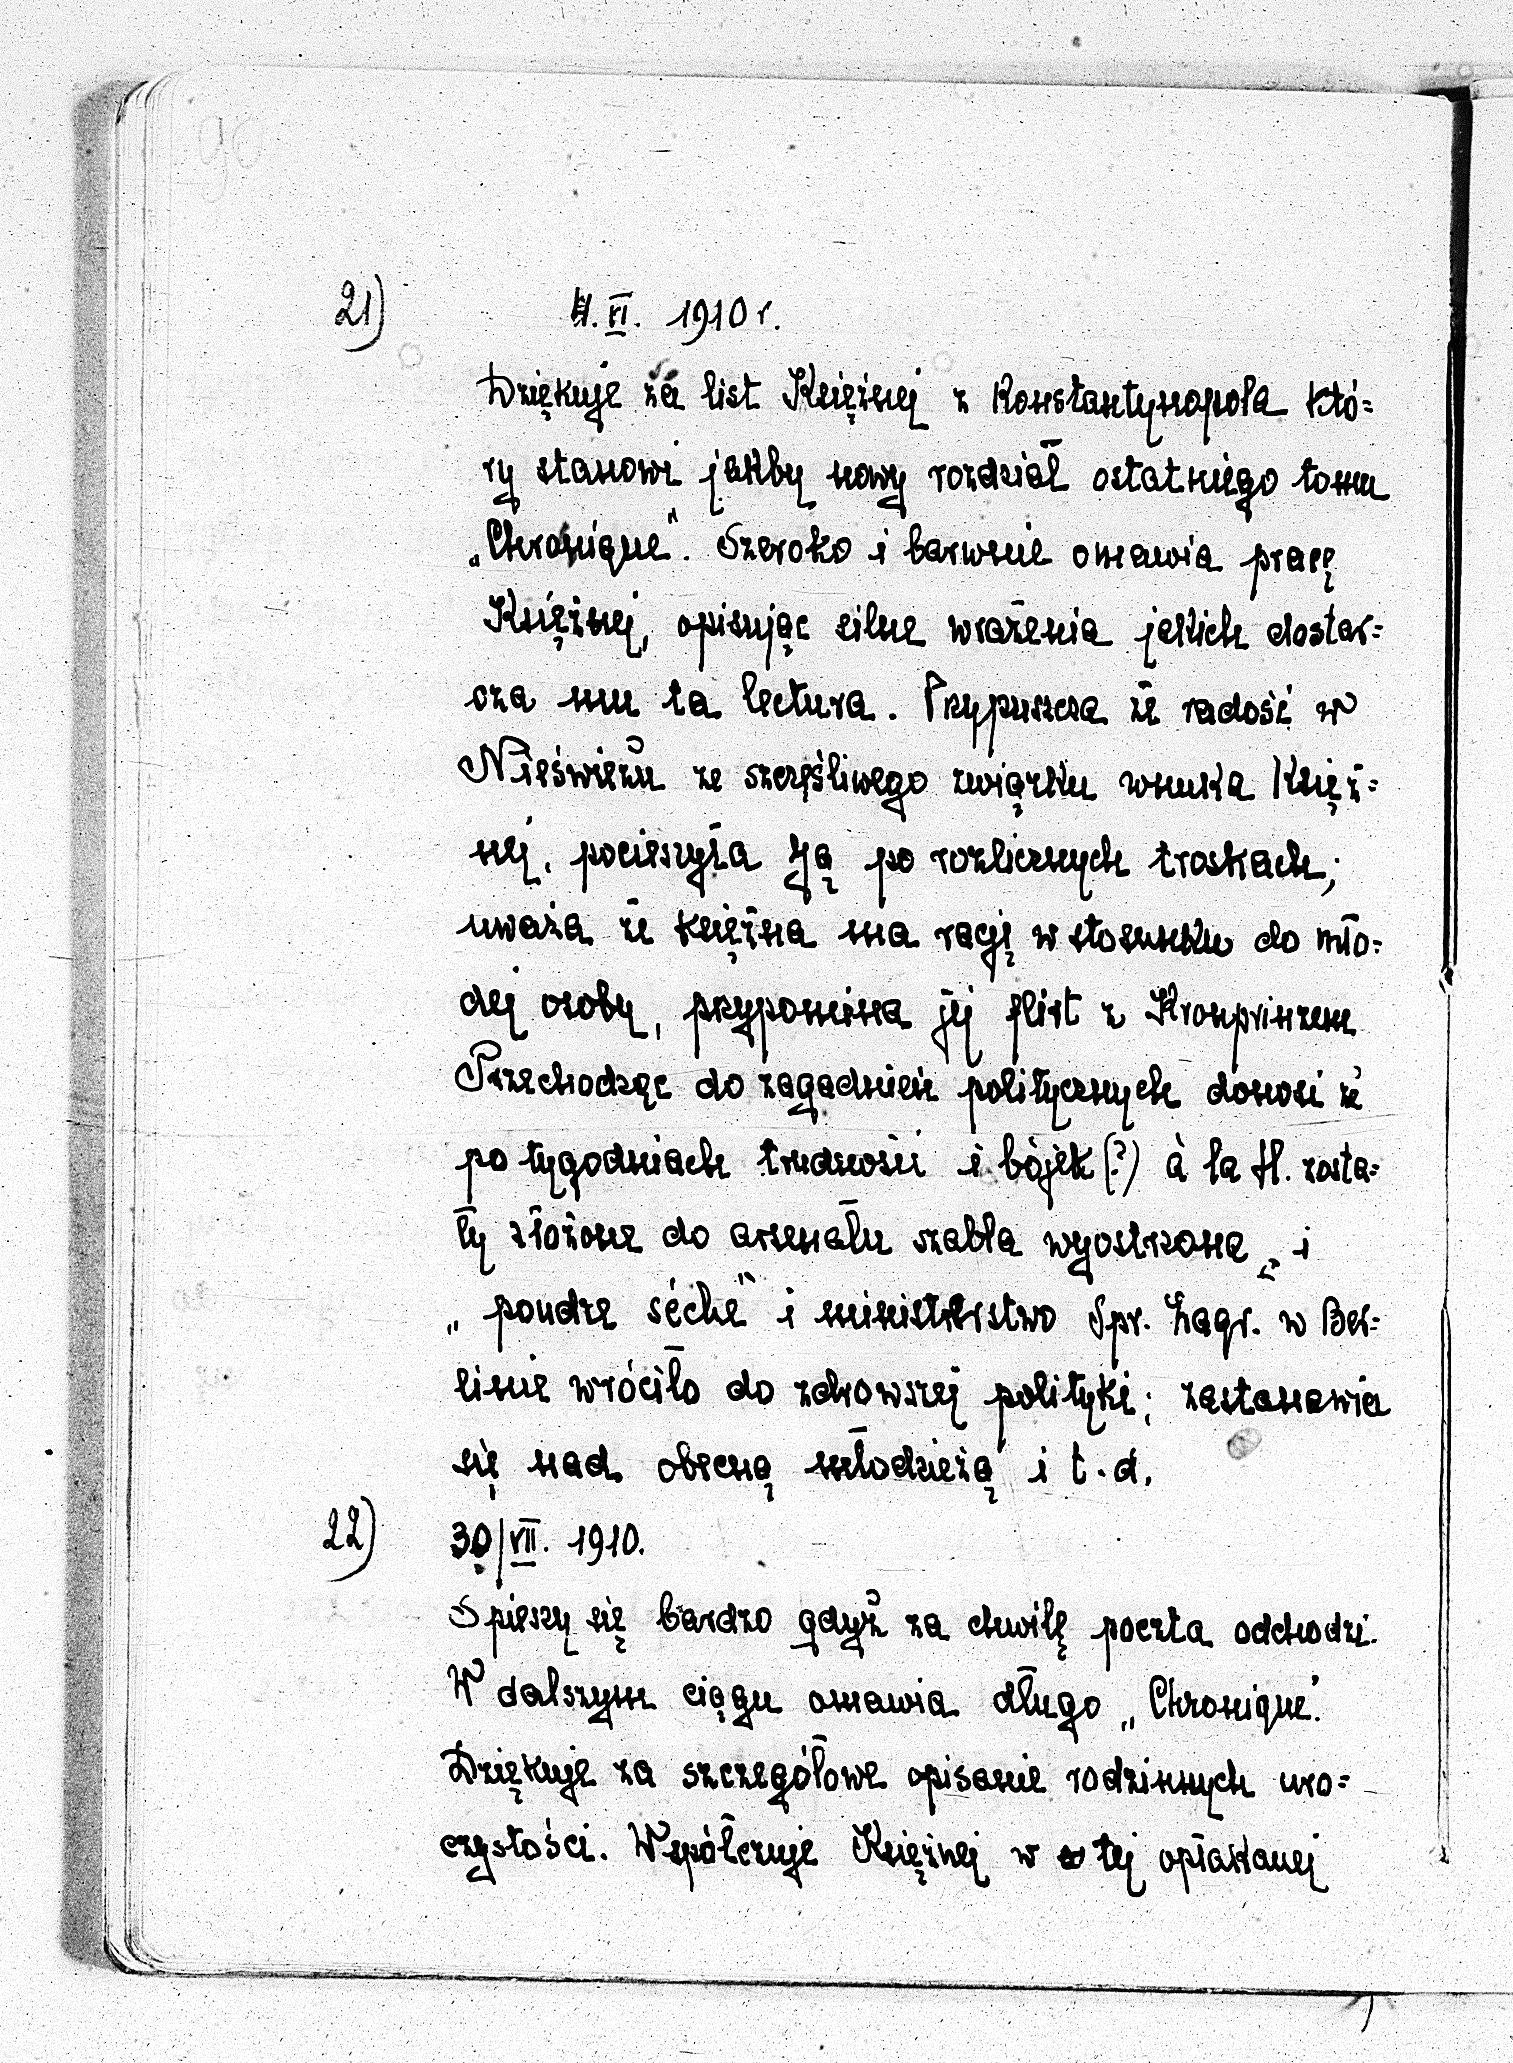 21) 4. VI. 1910 r.
Dziękuje za list Księżnej z Konstantynopola któ=
ry stanowi jakby nowy rozdział ostatniego tomu
„Chronique". Szeroko i barwnie omawia pracę
Księżnej, opisując silne wrażenia jakich dostar=
cza mu ta lectura. Przypuszcza że radość w
Nieświeżu ze szczęśliwego związku wnuka Księż=
nej, pocieszyła Ją po rozlicznych troskach;
uważa że księżna ma rację w stosunku do mło=
dej osoby, przypomina jej flirt z Kronprinzem
Przechodząc do zagadnień politycznych donosi że
po tygodniach trudności i bójek (?) à la H. zosta=
ły złożone do arsenału szabla wyostrzona „ i
„poudre séche" i ministerstwo Spr. Zagr. w Ber=
linie wróciło do zdrowszej polityki; zastanawia
się nad obecną młodzieżą i t.d.
22) 30/VII. 1910.
Spieszy się bardzo gdyż za chwilę poczta odchodzi.
W dalszym ciągu omawia długo „Chronique".
Dziękuje za szczegółowe opisanie rodzinnych uro=
czystości. Współczuje Księżnej w tej opłakanej